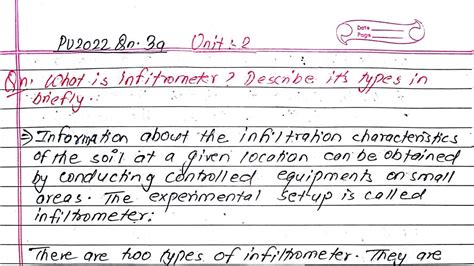 PU2022 Qn. 3a Unit:- 2
Date
Page
Qn. What is infitrometer? Describe it's types in
briefly.
⇒ Information about the infiltration characteristics
of the soil at a given location can be obtained
by conducting controlled equipments on small
areas. The experimental set-up is called
infiltrometer:
There are two types of infiltrometer. They are